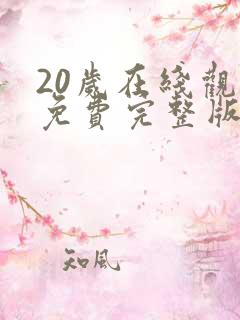 20歲在綫觀
免費完整版
知風